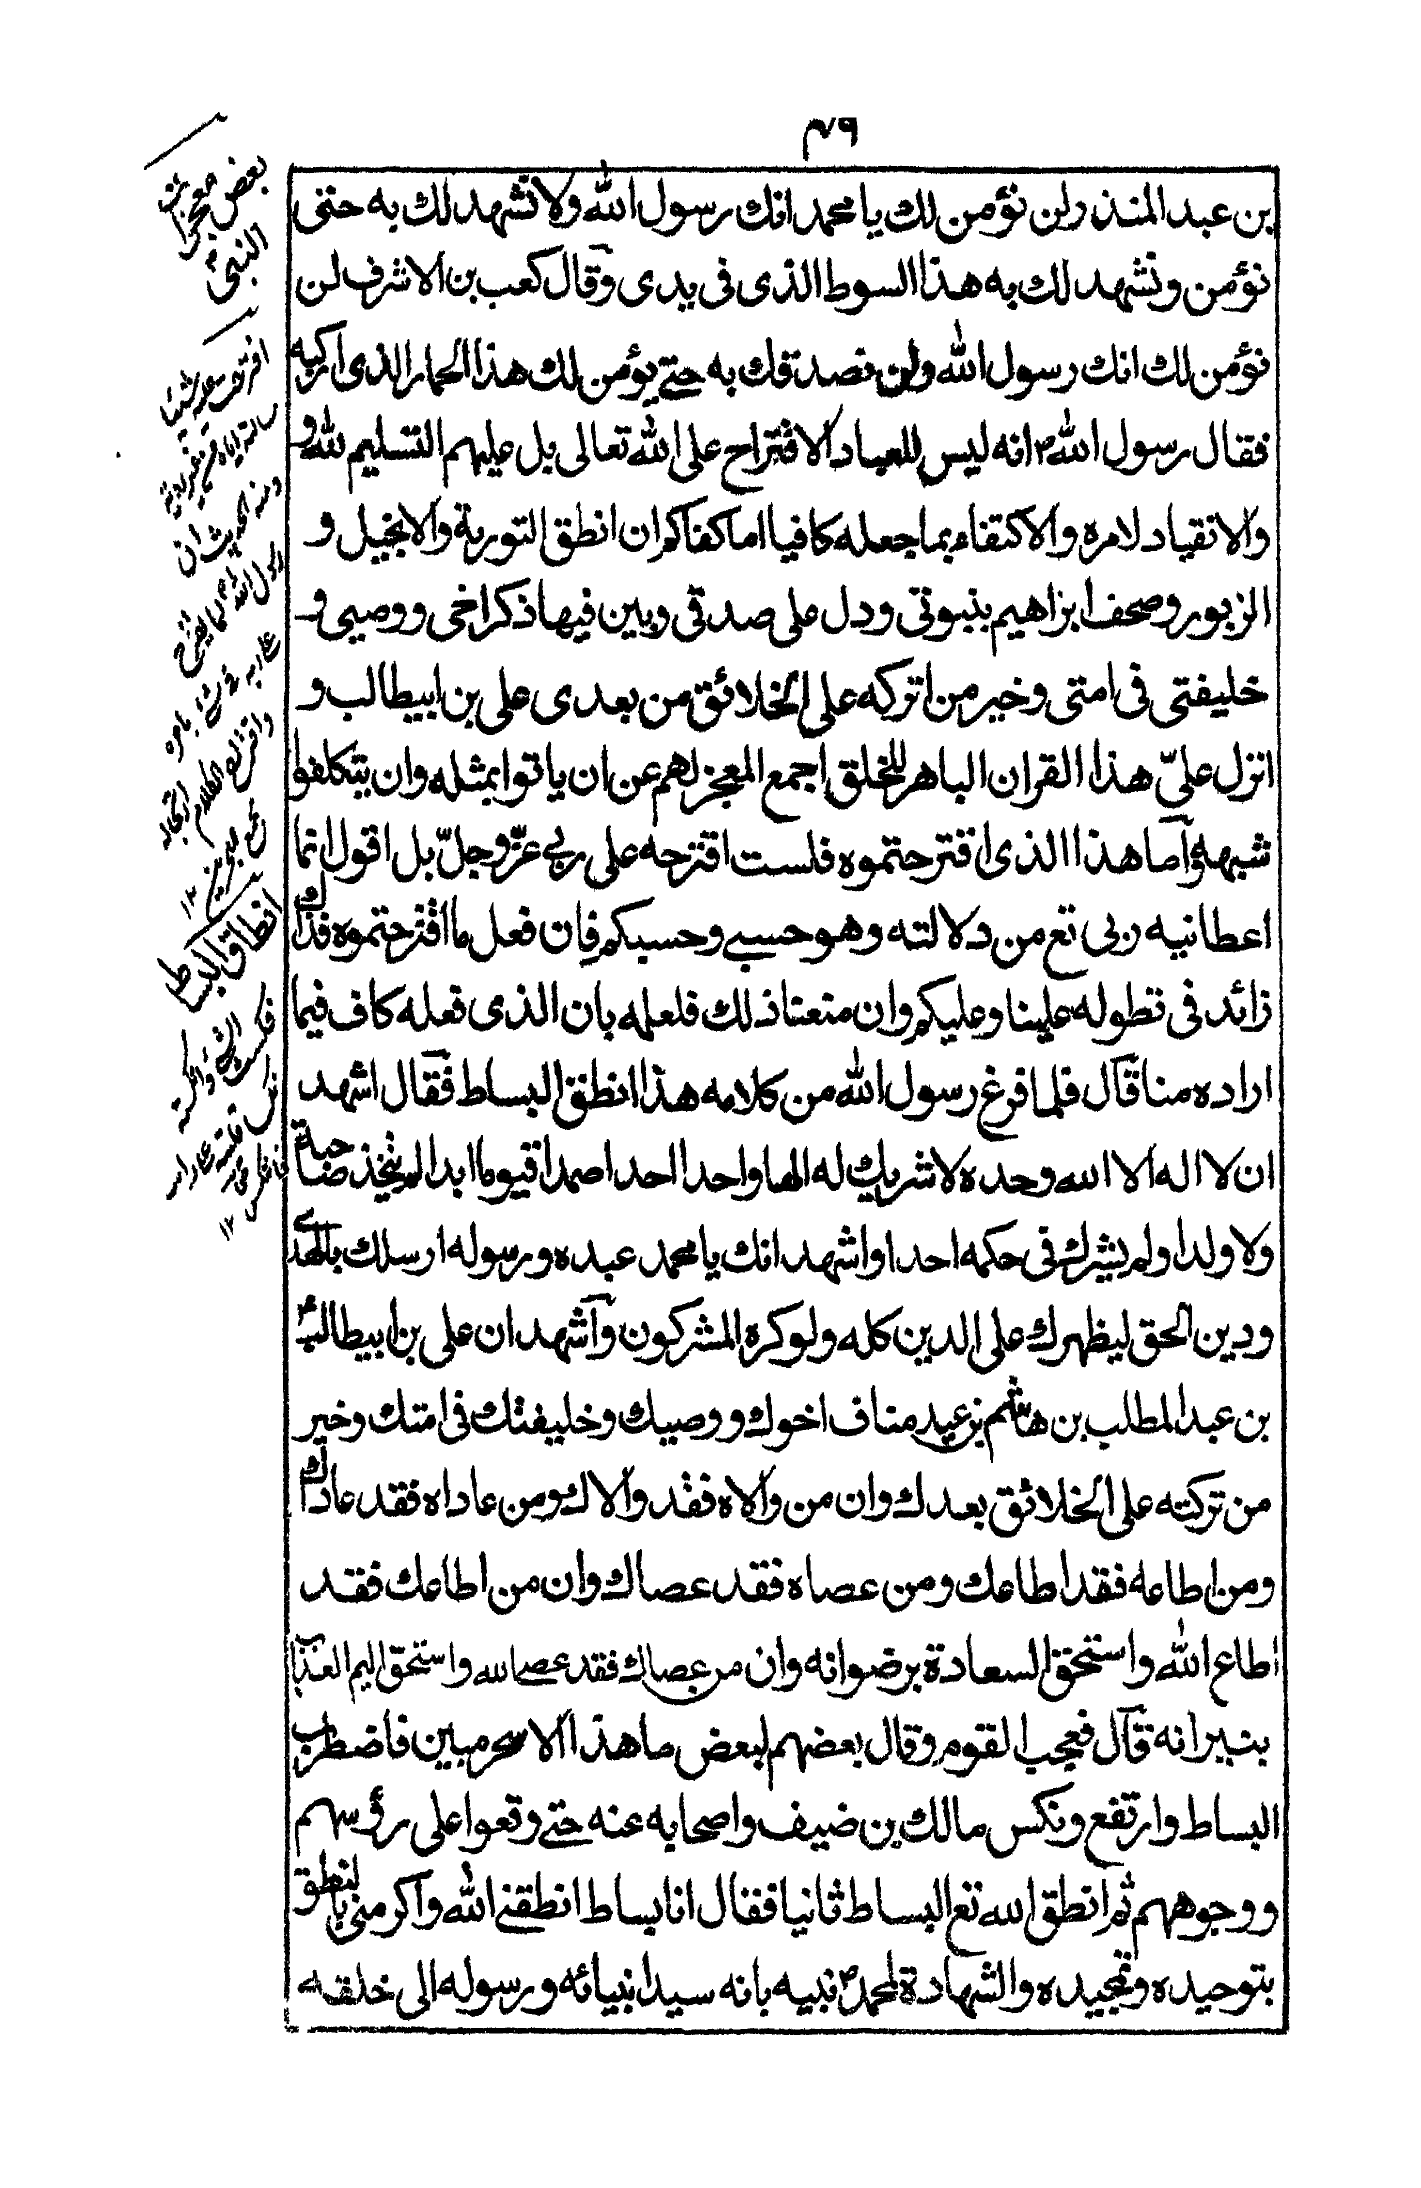 ٤٩
بن عبد المنذر لن نؤمن لك يا محمد انك رسول الله ولا نشهد لك به حتى
نؤمن ونشهد لك به هذا السوط الذى فى يدى وقال كعب بن الاشرف لن
نؤمن لك انك رسول الله ولن نصدقك به حتى يؤمن لك هذا الحمار الذى اركبه
فقال رسول الله ص انه ليس للعباد الاقتراح على الله تعالى بل عليهم التسليم لله و
والانقياد لامره والاكتفاء بما جعله كافيا اما كفاكم ان انطق التورية والانجيل و
الزبور وصحف ابراهيم بنبوتى ودل على صدقى وبين فيها ذكر اخى ووصيى و
خليفتى فى امتى وخير من اتركه على الخلائق من بعدى على بن ابيطالب و
انزل علىّ هذا القران الباهر للخلق اجمع المعجز لهم عن ان ياتوا بمثله وان يتكلفوا
شبهه وآما هذا الذى اقترحتموه فلست اقترحه على ربى عزّ وجلّ بل اقول انما
اعطانيه ربى تع من دلالته وهو حسبى وحسبكم فان فعل ما اقترحتموه فذاك
زائد فى تطوله علينا وعليكم وان منعنا ذلك فلعلمه بان الذى فعله كاف فيما
اراده منا قآل فلما فرغ رسول الله من كلامه هذا انطق البساط فقال اشهد
ان لا اله الا الله وحده لا شريك له الها واحدا احدا صمدا قيوما ابدا لم يتخذ صاحبة
ولا ولدا ولم يشرك فى حكمه احدا واشهد انك يا محمد عبده ورسوله ارسلك بالهدى
ودين الحق ليظهرك على الدين كله ولو كره المشركون وآشهد ان على بن ابيطالب
بن عبد المطلب بن هاشم بن عبد مناف اخوك ووصيك وخليفتك فى امتك وخير
من تركته على الخلائق بعدك وان من والاه فقد والاك ومن عاداه فقد عاداك
ومن اطاعه فقد اطاعك ومن عصاه فقد عصاك وان من اطاعك فقد
اطاع الله واستحق السعادة برضوانه وان من عصاك فقد عصى الله واستحق اليم العذاب
بنيرانه قآل فعجب القوم وقال بعضهم لبعض ما هذا الا سحر مبين فاضطرب
البساط وارتفع ونكس مالك بن ضيف واصحابه عنه حتى وقعوا على رؤسهم
ووجوههم ثم انطق الله تع البساط ثانيا فقال انا بساط انطقنى الله وآكرمنى بالنطق
بتوحيده وتمجيده والشهادة لمحمد ص نبيه بانه سيد انبيائه ورسوله الى خلقه
بعض معجزات
النبى
انطاق البساط